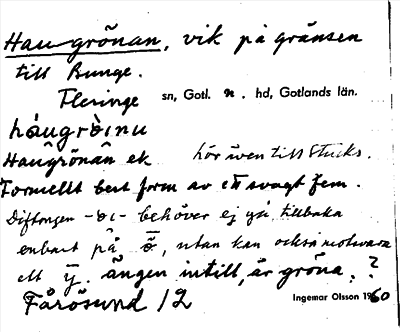 Haugrönan, vik på gränsen
till Bunge.
Fleringe sn, Gotl. n. hd, Gotlands län.
háugròinu
Haugrönan ek hör även till Stucks.
Formellt best form av ett svagt fem.
Diftongen -oi- behöver ej gå tillbaka
enbart på ō̈, utan kan också motsvara
ett ȳ. ängen intill, är gröna. ?
Fårösund 12
Ingemar Olsson 1960